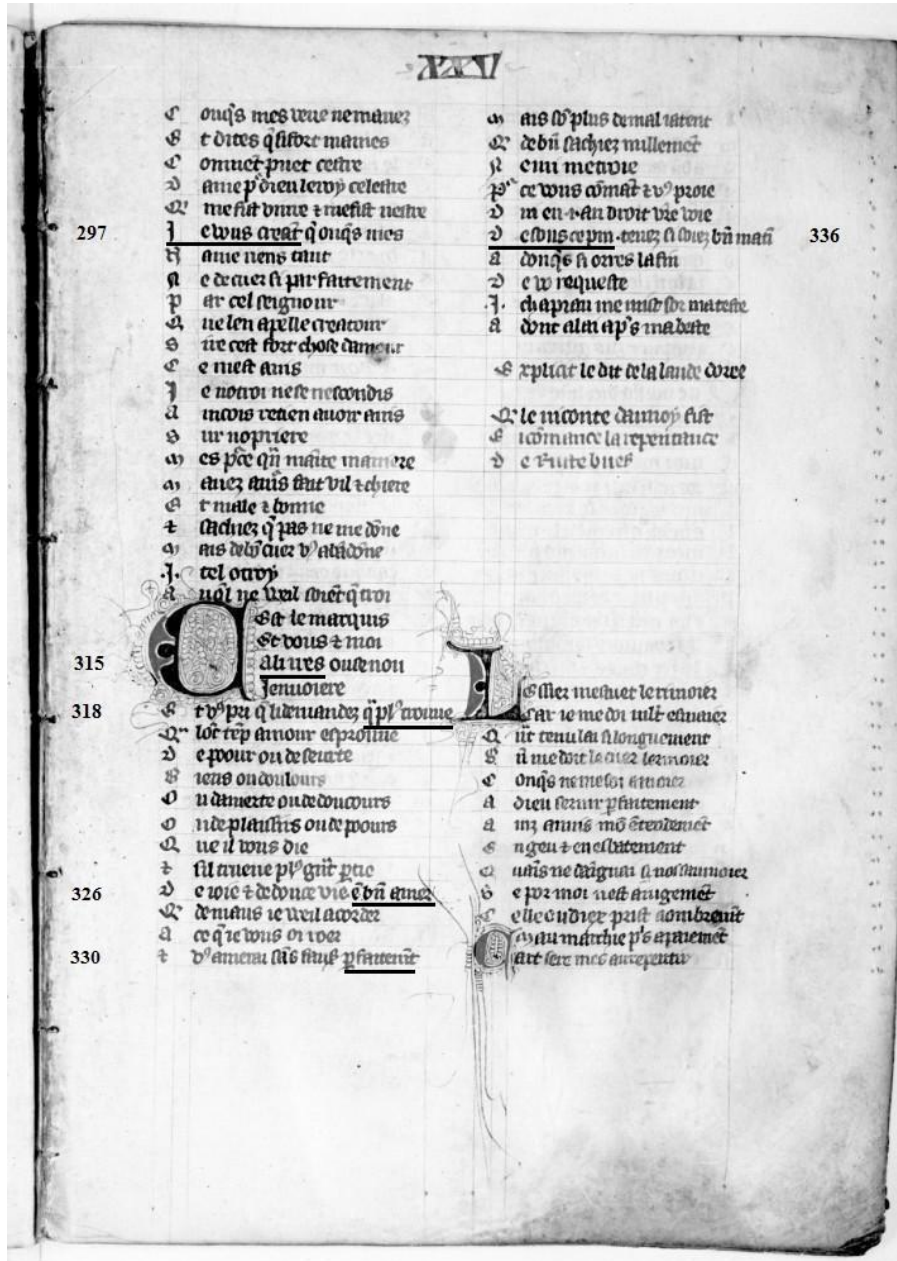 XXV
C onqs mes veue ne mauez
E t dites q si fort mames
C omuet puet cestre
D ame p dieu le roy celestre
Q me fist viure & me fist nestre
297
J e vous creat q onqs mes
N ame riens tant
N e de cuer si parfaitement
P ar cel seignour
Q ue len apelle creatour
S ire cest fort chose damour
C e mest auis
J e notroi ne se nescondis
A incois retien auoir amis
S ur no priere
M es pce qn mainte maniere
M auez
E t male & bonne
& sachiez q pas ne me done
M ais de bo cuer v abadone
.J. tel otroy
A uql ne weil soiet q troi
C Est le marquis
Et vous & moi
315
Ali ires ou se non
Jenuoiere
318
E t v pri q li demandez q pl trouue
Q lot tep amour esprouue
D e poour ou de seurte
B iens ou doulours
O u damerte ou de doucours
O u de plaisirs ou de poours
Q ue il vous die
& sil trueue pl grit ptie
326
D e ioie & de douce vie e bn amer
Q de maus ie weil acorder
A ce q ie vous oi
330
& v amerai sas faus pfaitemt
M ais so plus de mal iatent
Q de bn sachiez millemet
N enn metroie
P ce vous comat & v proie
D
336
D esous ce pin . tenez si soiez bn mati
A donqs si orres la fin
D e vo requeste
.J. chapiau me mist sor ma teste
A dont alai aps ma beste
E xplicit le dit de la lande doree
Q le viconte daunoy fist
E icomance la repentance
D e Rutebuef
L Essier mestuet le rimoier
Car ie me doi mlt esmaier
Q nt tenu lai si longuement
B n me doit le cuer lermoier
C onqs ne me soi amoier
A dieu seruir pfaitement
A inz ai mis mo etedemet
E n geu & en esbatement
Q
S e por moi nest au iugemet
C elle ou diex prist aombremt
Mau marchie ps a paiemet
T art sere mes au repentir